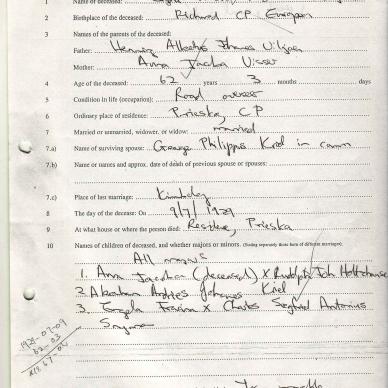 1 Name of deceased:
2 Birthplace of the deceased: Richmond CP European
3 Names of the parents of the deceased:
Father:
Mother: Anna Jacoba Visser
4 Age of the deceased: 62 years 3 months days
5 Condition in life (occupation): Road
6 Ordinary place of residence: Prieska, CP
7 Married or unmarried, widower, or widow: married
7.a) Name of surviving spouse: George Philippus Kriel in comm
7.b) Name or names and approx. date of death of previous spouse or spouses:
7.c) Place of last marriage: Kimberley
8 The day of the deceased: On 9/7/1929
9 At what house or where the person died: Prieska
10 Names of children of deceased, and whether majors or minors. (Stating separately those born of different marriages).
All majors
1. Anna Jacoba (deceased) x Rudolph Joh Holtzhausen
2. Abraham Andries Johannes Kriel
3. x Charles Siegfried Antonius
Snyman
1929-07-09
62-03